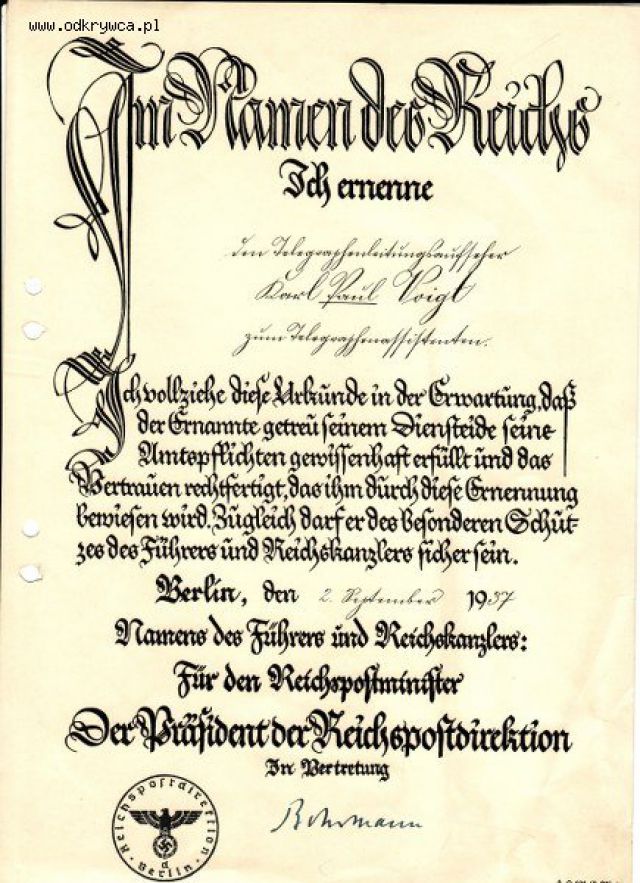 www.odkrywca.pl
Im Namen des Reichs
Ich ernenne
den Telegraphenleitungsaufseher
Karl Paul Voigt
zum Telegraphenassistenten.
Ich vollziehe diese Urkunde in der Erwartung, daß
der Ernannte getreu seinem Diensteide seine
Amtspflichten gewissenhaft erfüllt und das
Vertrauen rechtfertigt, das ihm durch diese Ernennung
bewiesen wird. Zugleich darf er des besonderen Schut-
zes des Führers und Reichskanzlers sicher sein.
Berlin, den 2. September 1937
Namens des Führers und Reichskanzlers:
Für den Reichspostminister
Der Präsident der Reichspostdirektion
In Vertretung
Reichspostdirektion
Berlin